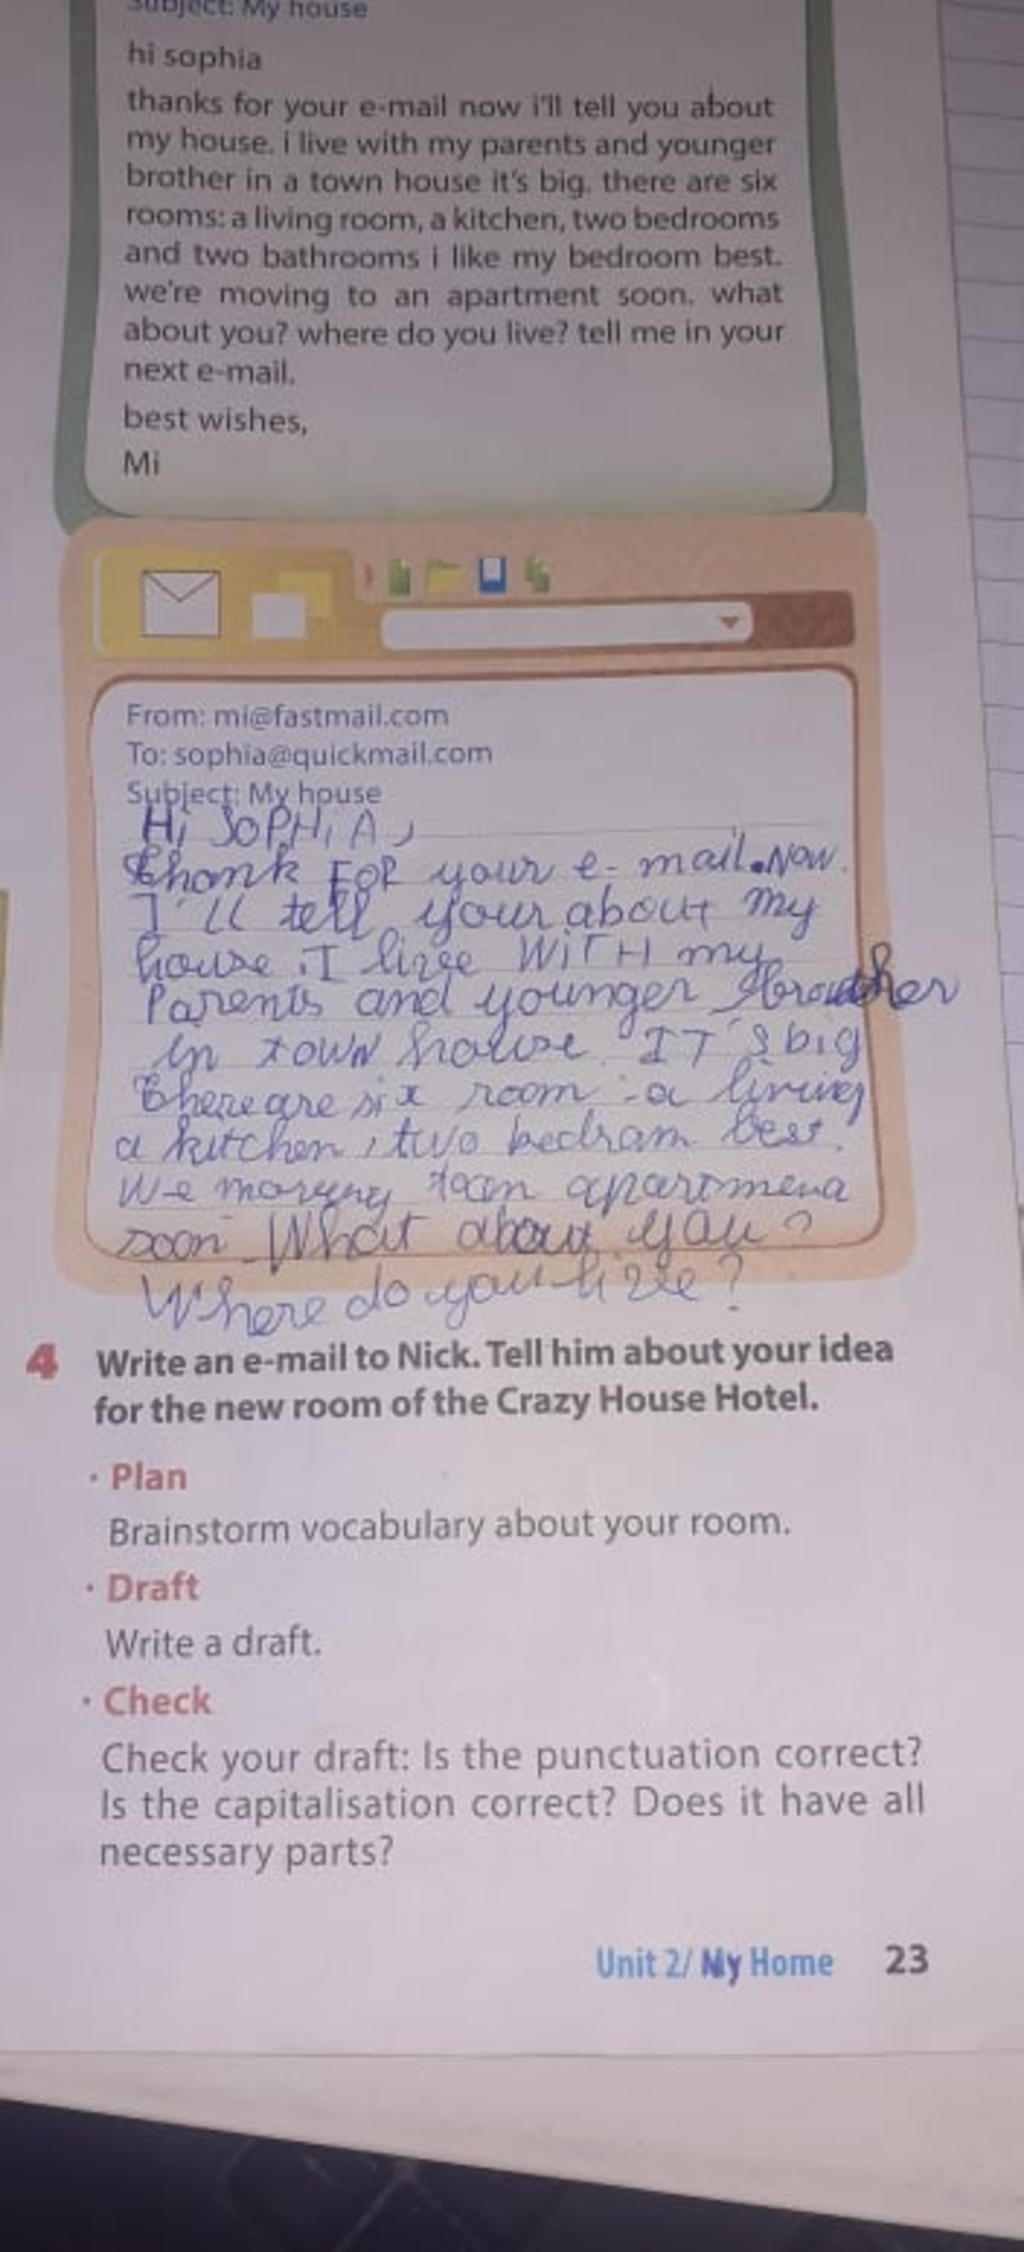 Subject: My house
hi sophia
thanks for your e-mail now i'll tell you about
my house. i live with my parents and younger
brother in a town house it's big. there are six
rooms: a living room, a kitchen, two bedrooms
and two bathrooms i like my bedroom best.
we're moving to an apartment soon. what
about you? where do you live? tell me in your
next e-mail.
best wishes,
Mi
From: mi@fastmail.com
To: sophia@quickmail.com
Subject: My house
Hi SOPHIA,
Thank FOR your e-mail. Now
I'll tell your about my
house. I live WITH my
Parents and younger brother
in town house. IT's big
There are six room: a living
a kitchen, two bedram best.
We moryny toan apartmena
soon. What about you?
Where do you live?
4 Write an e-mail to Nick. Tell him about your idea
for the new room of the Crazy House Hotel.
· Plan
Brainstorm vocabulary about your room.
· Draft
Write a draft.
· Check
Check your draft: Is the punctuation correct?
Is the capitalisation correct? Does it have all
necessary parts?
Unit 2/ My Home 23